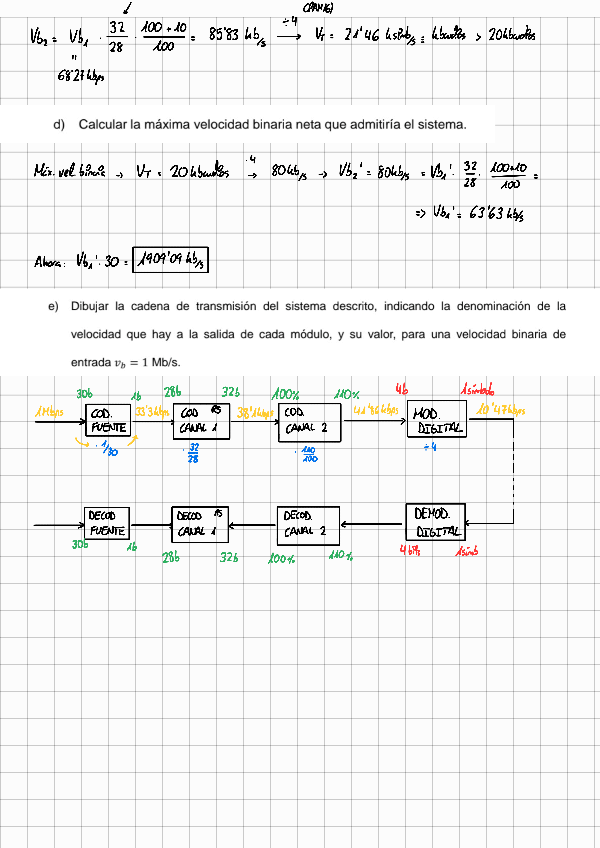 (PAM16)
Vb₂ = Vb₁ · 32/28 · (100+10)/100 = 85'83 kb/s →(÷4) V_T = 21'46 ksimb/s = kbaudios > 20kbaudios
"
68'27 kbps
d) Calcular la máxima velocidad binaria neta que admitiría el sistema.
Máx. vel binaria → V_T = 20kbaudios →(·4) 80kb/s → Vb₂' = 80kb/s = Vb₁' · 32/28 · (100+10)/100 =
=> Vb₁' = 63'63 kb/s
Ahora: Vb₁' · 30 = 1909'09 kb/s
e) Dibujar la cadena de transmisión del sistema descrito, indicando la denominación de la
velocidad que hay a la salida de cada módulo, y su valor, para una velocidad binaria de
entrada v_b = 1 Mb/s.
30b 1b 28b 32b 100% 110% 4b 1símbolo
1Mbps COD. FUENTE 33'3kbps COD RS CANAL 1 38'1kbps COD. CANAL 2 41'90kbps MOD. DIGITAL 10'47kbps
· 1/30 · 32/28 · 110/100 ÷4
DECOD FUENTE DECOD RS CANAL 1 DECOD. CANAL 2 DEMOD. DIGITAL
30b 1b 28b 32b 100% 110% 4bits 1simb